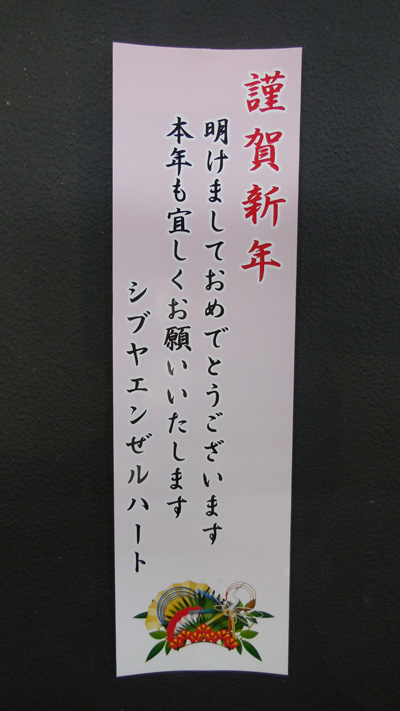 謹賀新年
明けましておめでとうございます
本年も宜しくお願いいたします
シブヤエンゼルハート